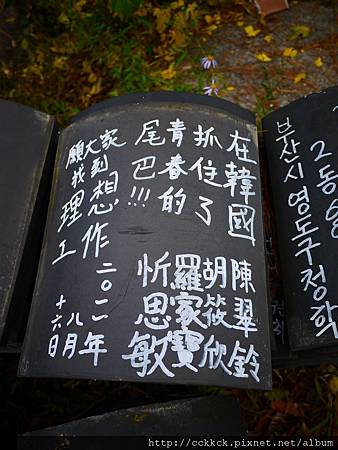 在韓國
抓住了
青春的
尾巴!!!
陳翠鈴
胡筱欣
羅家寶
忻思敏
願大家
找到
理想
工作
二〇一一年
八月
十六日
2동
부산시 영도구 정학
http://cckkck.pixnet.net/album